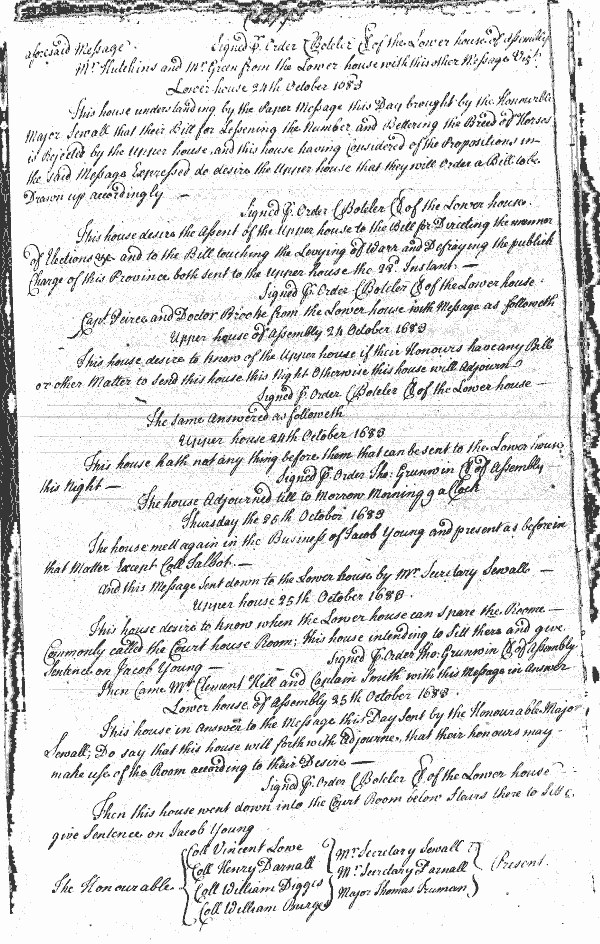 aforesaid Message. Signed p. Order C Boteler Cl of the Lower house of Assembly
Mr. Hutchins and Mr. Green from the Lower house with this other Message Vizt.
Lower house 24th October 1683
This house understanding by the Paper Message this Day brought by the Honourble
Major Sewall that their Bill for Lessening the Number and Bettering the Breed of Horses
is Rejected by the Upper house, and this house having Considered of the Propositions in
the said Message Expressed do desire the Upper house that they will Order a Bill to be
Drawn up accordingly —
Signed p. Order C Boteler Cl of the Lower house.
This house desire the Assent of the Upper house to the Bill for Directing the manner
of Elections &c and to the Bill touching the Levying of Warr and Defraying the publick
Charge of this Province both sent to the Upper house the 23d Instant. —
Signed p. Order C Boteler Cl of the Lower house.
Capt. Peirce and Doctor Brooke from the Lower house with Message as followeth
Upper house of Assembly 24 October 1683
This house desire to know of the Upper house if their Honours have any Bill
or other Matter to Send this house this Night Otherwise this house will Adjourn
Signed p. Order C Boteler Cl of the Lower house —
The same Answered as followeth
Upper house 24th October 1683
This house hath not any thing before them that can be sent to the Lower house
this Night — Signed p. Order Tho: Grunwin Cl of Assembly
The house Adjourned till to Morrow Morning 9 a Clock
Thursday the 25th October 1683
The house mett again in the Business of Jacob Young and present as before in
that Matter Except Coll Talbot. —
And this Message Sent down to the Lower house by Mr. Secretary Sewall —
Upper house 25th October 1683.
This house desire to know when the Lower house can Spare the Roome —
Commonly called the Court house Room; this house intending to Sitt there and give
Sentence on Jacob Young — Signed p. Order Tho: Grunwin Cl of Assembly
Then Came Mr. Clement Hill and Captain Smith with this Message in Answer
Lower house of Assembly 25th October 1683.
This house in Answer to the Message this Day Sent by the Honourable Major
Sewall; Do say that this house will forthwith Adjourne, that their honours may
make use of the Room according to their Desire —
Signed p. Order C Boteler Cl of the Lower house
Then this house went down into the Court Room below Stairs there to Sitt &
give Sentence on Jacob Young
The Honourable
Coll Vincent Lowe
Coll Henry Darnall
Coll William Digges
Coll William Burges
Mr. Secretary Sewall
Mr. Secretary Darnall
Major Thomas Truman
Present.